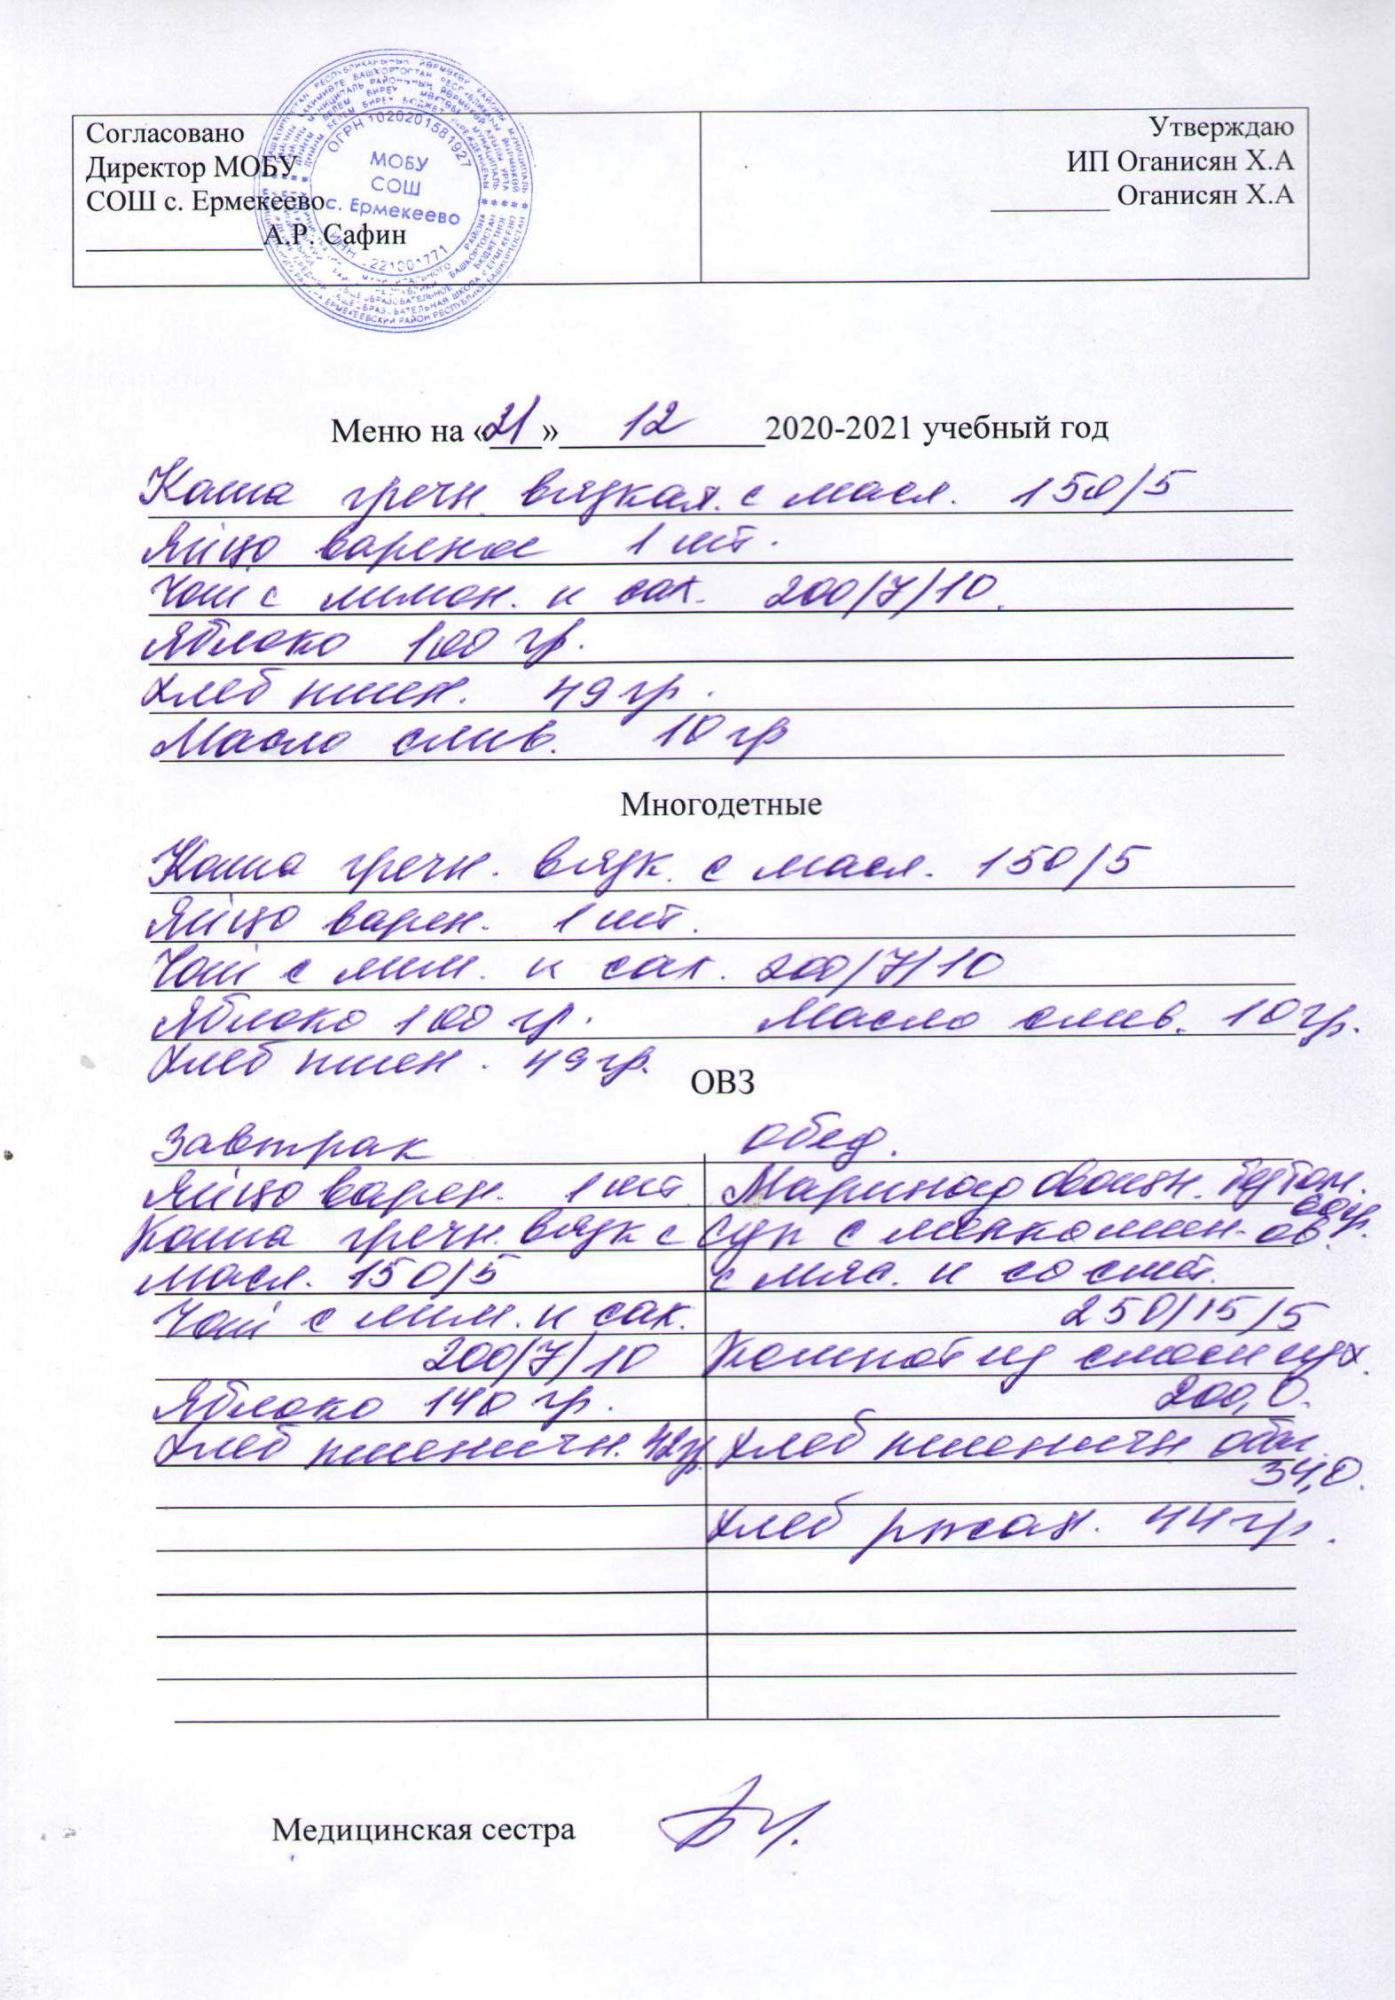 Согласовано
Директор МОБУ
СОШ с. Ермекеево
____________А.Р. Сафин
Утверждаю
ИП Оганисян Х.А
________ Оганисян Х.А
ОГРН 1020201581927
МОБУ
СОШ
с. Ермекеево
Меню на «21» 12 2020-2021 учебный год
Каша гречн. вязкая. с масл. 150/5
Яйцо вареное 1 шт.
Чай с лимон. и сах. 200/7/10.
Яблоко 100 гр.
Хлеб пшен. 49 гр.
Масло слив. 10 гр
Многодетные
Каша гречн. вязк. с масл. 150/5
Яйцо варен. 1 шт.
Чай с лим. и сах. 200/7/10
Яблоко 100 гр. Масло слив. 10 гр.
Хлеб пшен. 49 гр.
ОВЗ
Завтрак
Яйцо варен. 1 шт.
Каша гречн. вязк с
масл. 150/5
Чай с лим. и сах.
200/7/10
Яблоко 140 гр.
Хлеб пшеничн. 42гр
Обед.
Маринад овощн.
Суп с
с мяс. и со смет.
250/15/5
Компот из смеси сух.
200,0.
Хлеб пшеничн
34,0.
Хлеб ржан. 44 гр.
Медицинская сестра